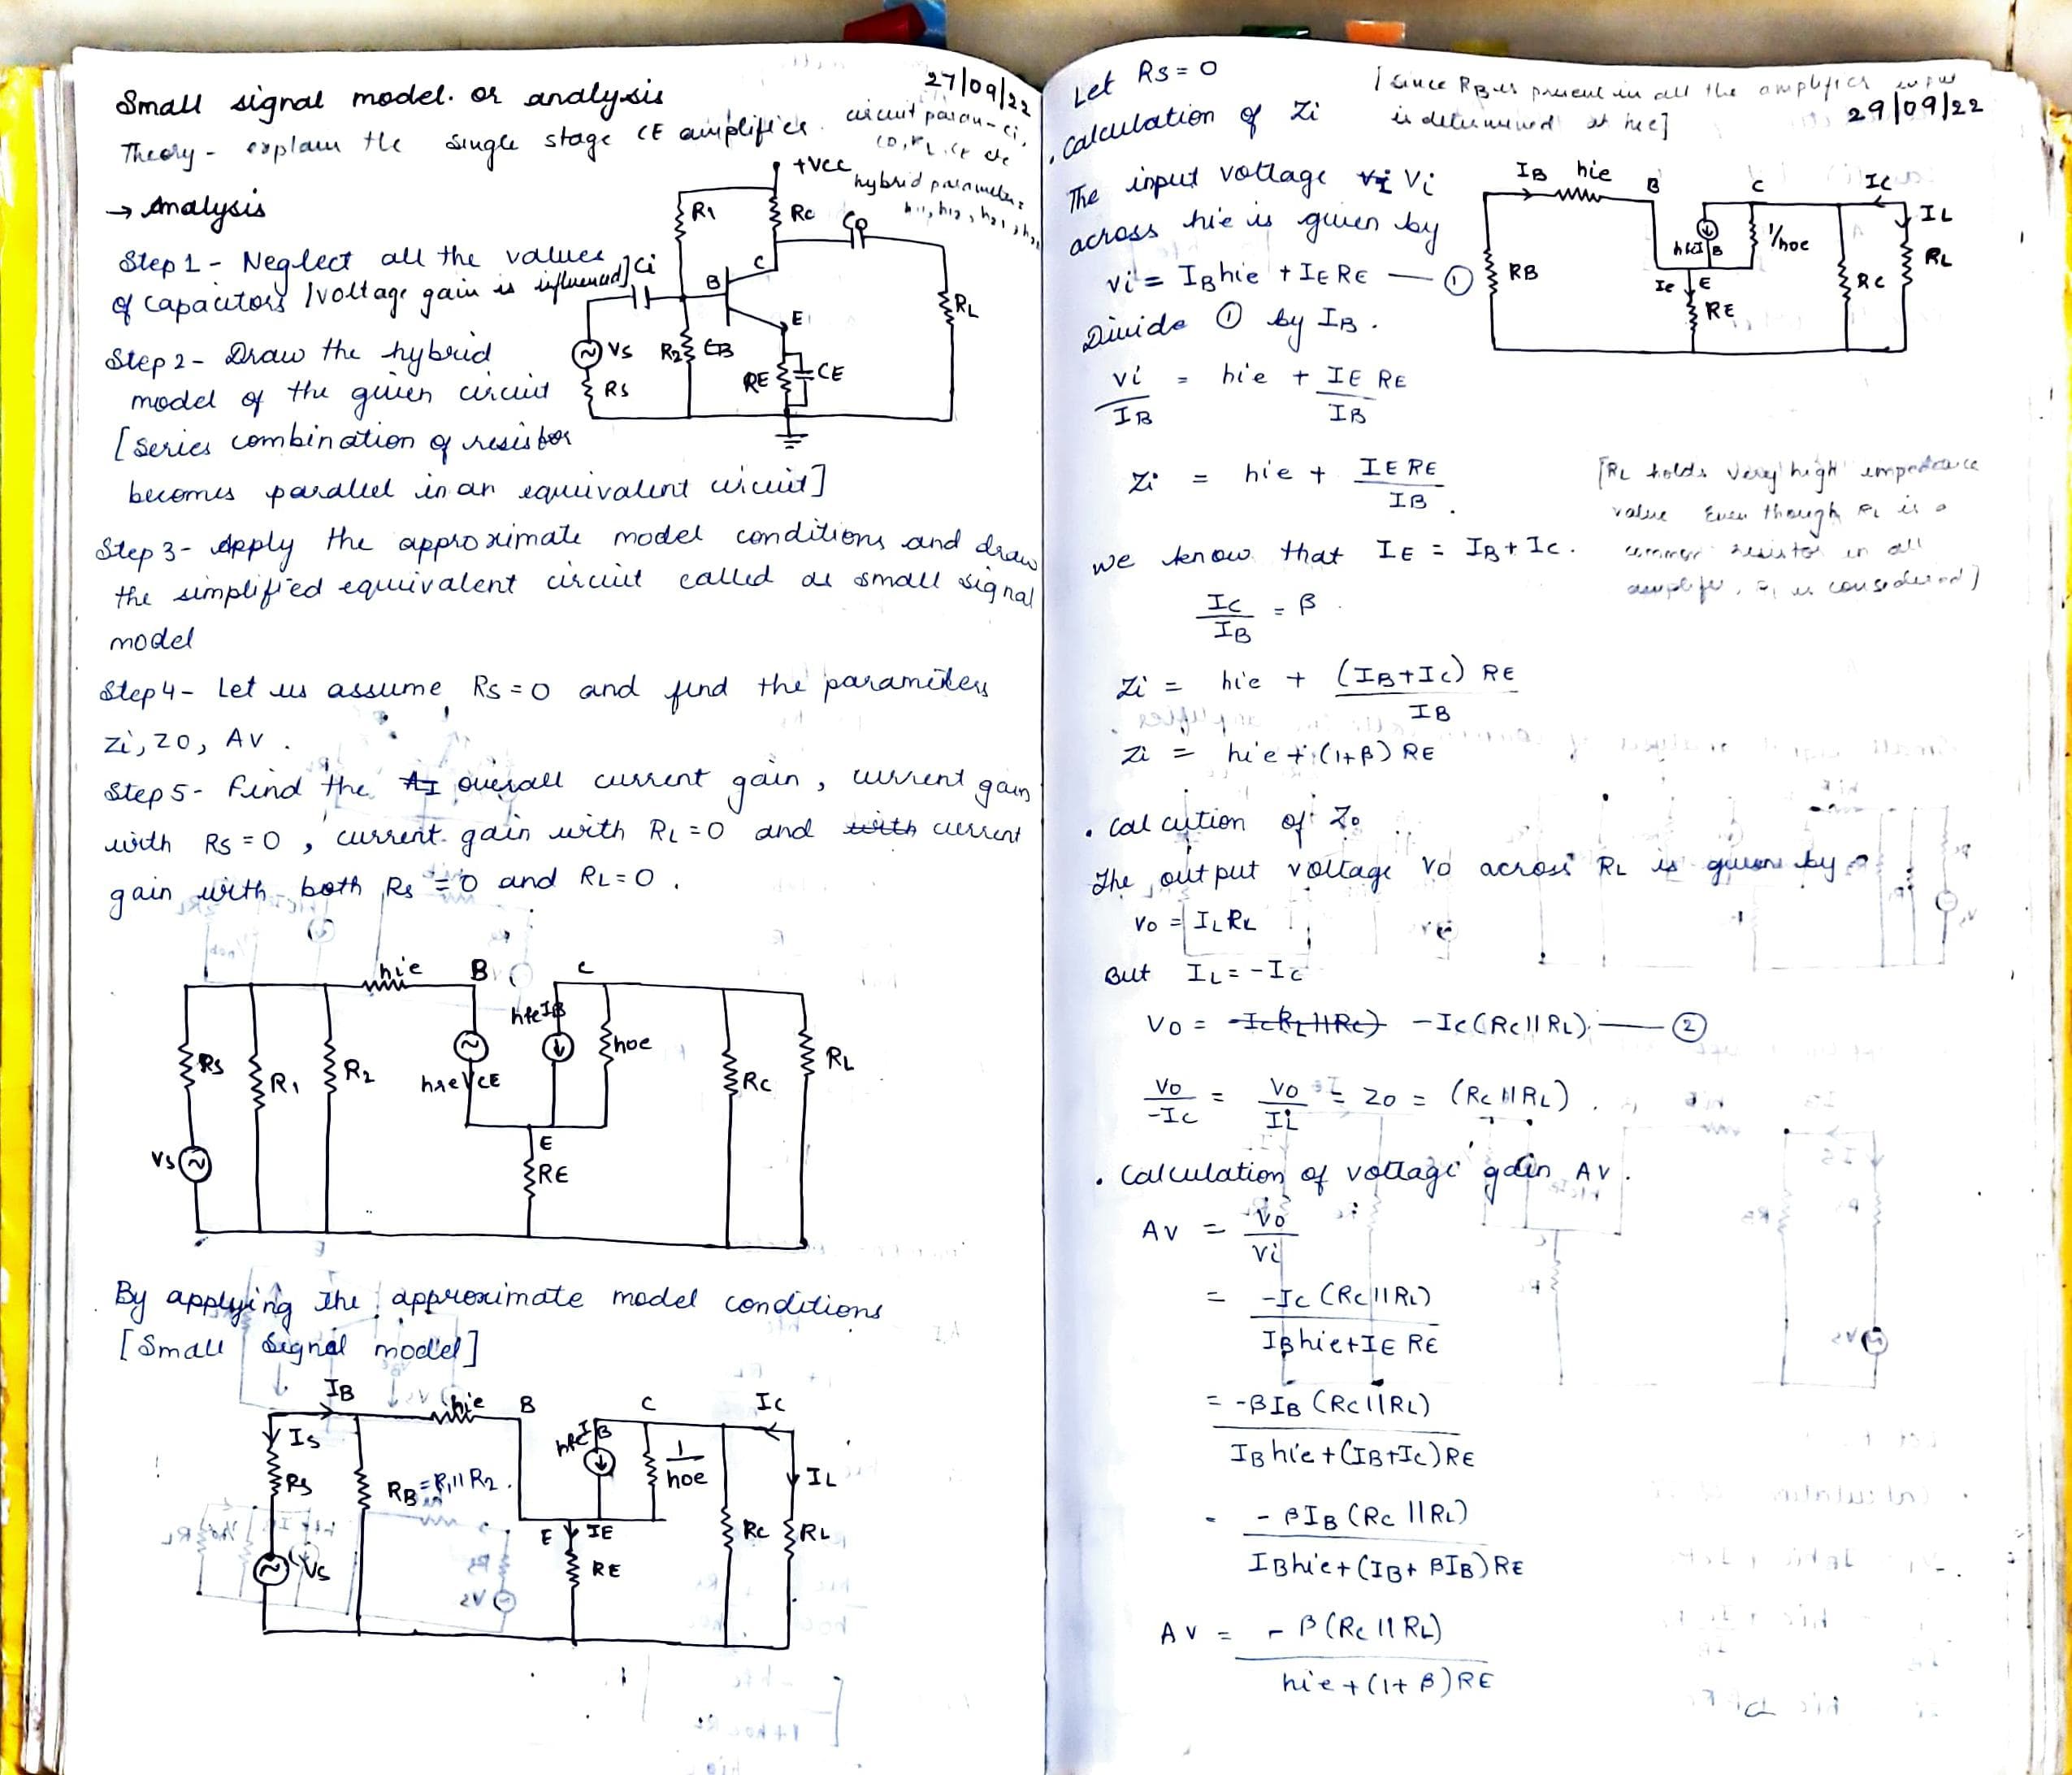 27/09/22
Small signal model. or analysis
Theory - explain the single stage CE amplifier.
circuit param - ci,
co, RL, CE etc
hybrid parameters
h11, h12, h21, h22
→ Analysis
Step 1 - Neglect all the values
of capacitors [voltage gain is influenced]
Step 2 - Draw the hybrid
model of the given circuit
[Series combination of resistor
becomes parallel in an equivalent circuit]
+Vcc
R1
Rc
Co
C
Ci
B
E
RL
Vs
R2
RE
CE
Rs
Step 3 - Apply the approximate model conditions and draw
the simplified equivalent circuit called as small signal
model
Step 4 - Let us assume Rs = 0 and find the parameters
Zi, Zo, AV.
Step 5 - Find the overall current gain, current gain
with Rs = 0, current gain with RL = 0 and current
gain with both Rs = 0 and RL = 0.
hie
B
C
hfeIB
hoe
Rs
R1
R2
hreVCE
Rc
RL
Vs
E
RE
By applying the approximate model conditions
[Small Signal model]
IB
hie
B
C
Ic
Is
hfeIB
1/hoe
IL
Rs
RB = R1 || R2.
E
IE
Rc
RL
RE
Vs
Let Rs = 0
[since RB is present in all the amplifier
is determined at hie]
29/09/22
• Calculation of Zi
The input voltage Vi
across hie is given by
vi = IBhie + IE RE — ①
Divide ① by IB.
IB
hie
B
C
IC
IL
hfeIB
1/hoe
RB
RC
RL
Ie
E
RE
vi/IB = hie + IE RE/IB
Zi = hie + IE RE/IB.
[RL holds very high impedance
value Even though RL is a
common resistor in all
amplifier, RL is considered]
we know that IE = IB + Ic.
Ic/IB = β.
Zi = hie + (IB+Ic) RE/IB
Zi = hie + (1+β) RE
• Calcution of Zo
The output voltage Vo across RL is given by
Vo = IL RL
But IL = -Ic
Vo = -Ic(Rc || RL). — ②
Vo/-Ic = Vo/IL = Zo = (Rc || RL).
• Calculation of voltage gain AV.
AV = Vo/Vi
= -Ic (Rc || RL)/IBhie+IE RE
= -βIB (Rc || RL)/IB hie + (IB+Ic)RE
= - βIB (Rc || RL)/IBhie + (IB + βIB)RE
AV = - β (Rc || RL)/hie + (1+ β)RE